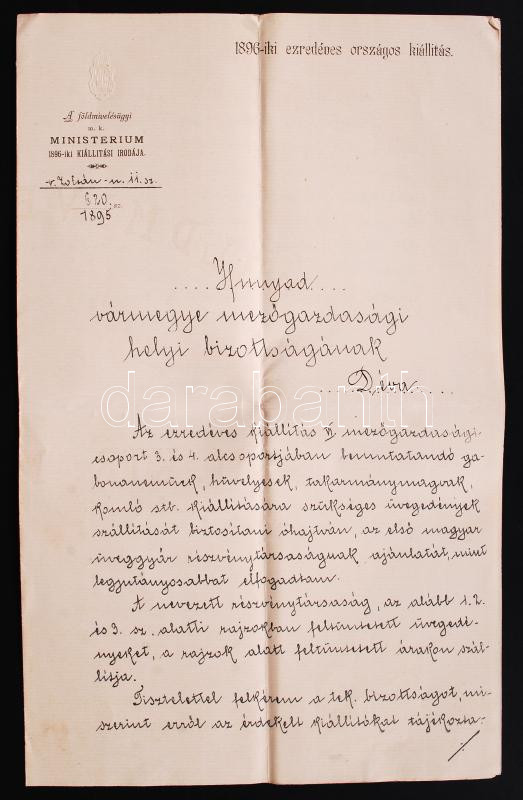 1896-iki ezredéves országos kiállitás.
A földmivelésügyi
m. k.
MINISTERIUM
1896-iki KIÁLLITÁSI IRODÁJA.
v. Zoltán-u. 11. sz.
620. sz.
1895
....Hunyad....
vármegye mezőgazdasági
helyi bizottságának
....Déva.....
darabanth
Az ezredéves kiállitás VI mezőgazdasági
csoport 3. és 4. alcsoportjában bemutatandó ga-
bonanemüek, hüvelyesek, takarmánymagvak,
komló stb. kiállitására szükséges üvegedények
szállitását biztositani óhajtván, az első magyar
üveggyár részvénytársaságnak ajánlatát, mint
legjutányosabbat elfogadtam.
A nevezett részvénytársaság, az alább 1. 2.
és 3. sz. alatti rajzokban feltüntetett üvegedé-
nyeket, a rajzok alatt feltüntetett árakon szál-
litja.
Tisztelettel felkérem a tek. bizottságot, mi-
szerint erről az érdekelt kiállitókat tájékozta-